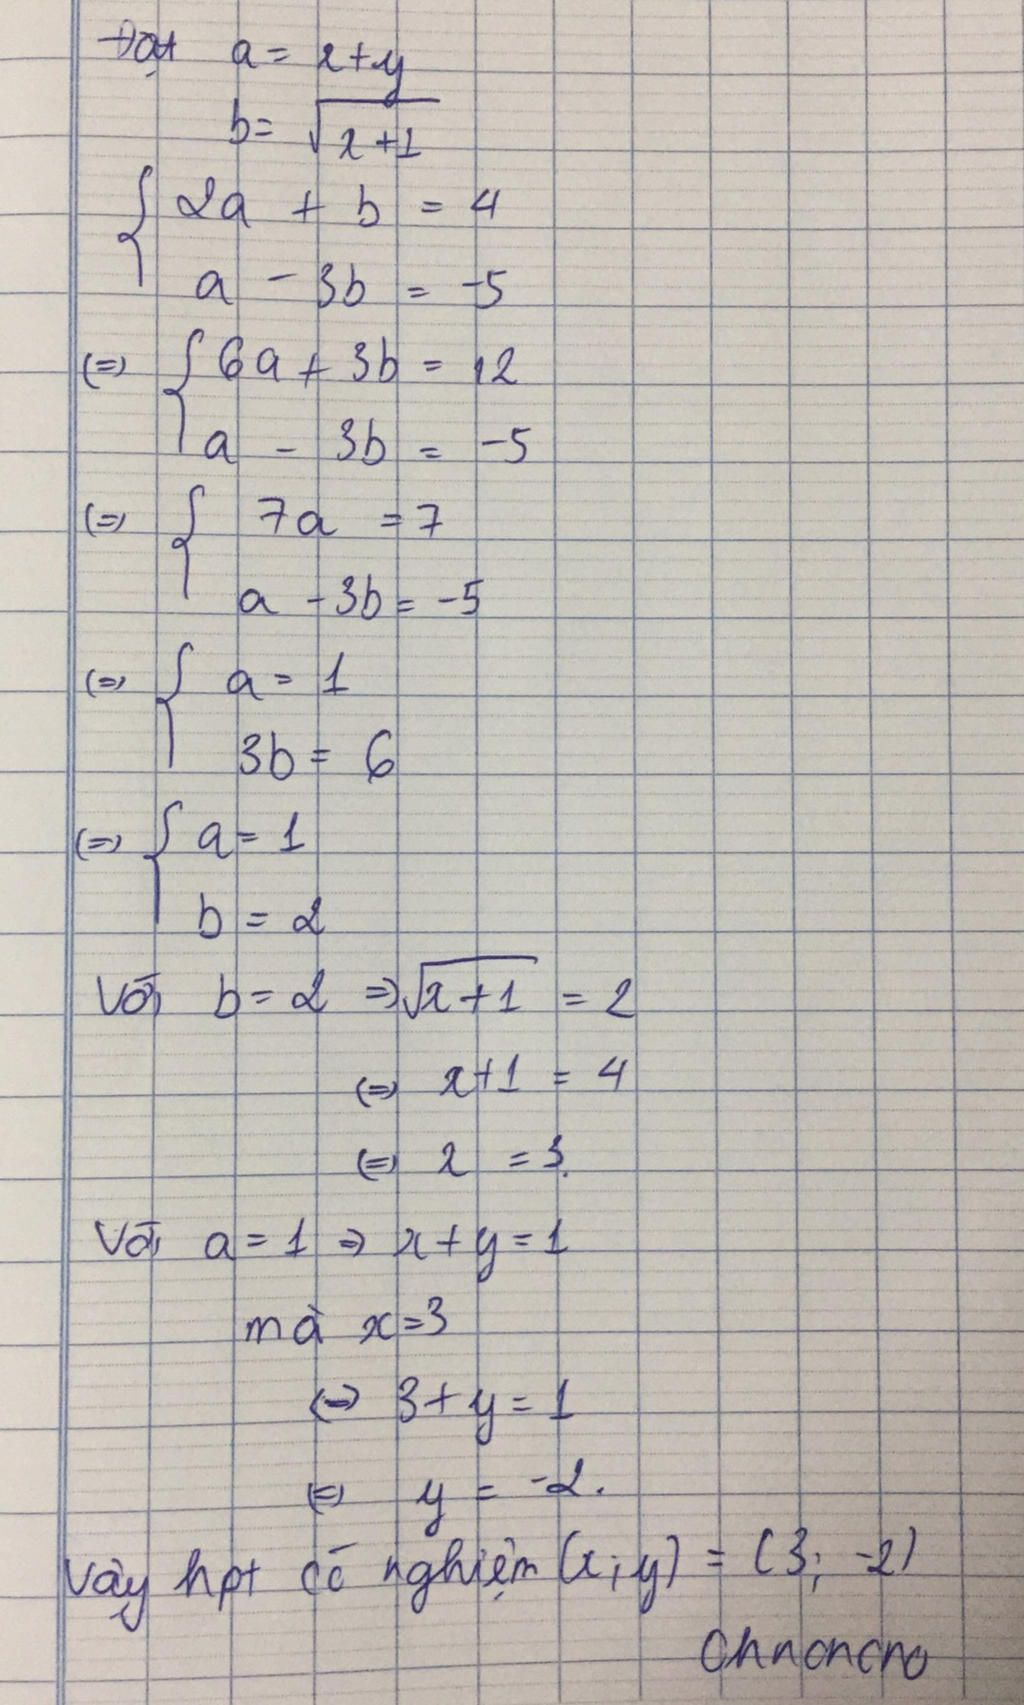 Đặt a = x+y
b = √x+1
{ 2a + b = 4
a - 3b = -5
(=) { 6a + 3b = 12
a - 3b = -5
(=) { 7a = 7
a - 3b = -5
(=) { a = 1
3b = 6
(=) { a = 1
b = 2
Với b = 2 => √x+1 = 2
(=) x+1 = 4
(=) x = 3.
Với a = 1 => x+y = 1
mà x=3
(=) 3+y = 1
(=) y = -2.
Vậy hpt có nghiệm (x;y) = (3; -2)